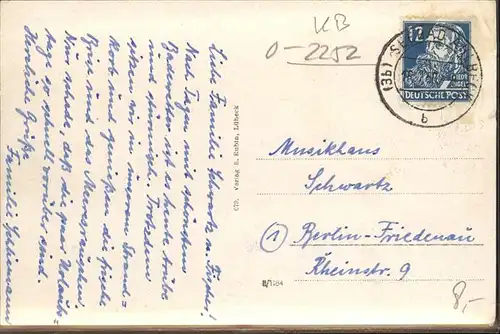 Liebe Familie Schwartz u. Frizzi!
Nach Tagen mit schönstem
Badewetter ist es heute trübe
und stürmisch. Trotzdem
sitzen wir in unserem Strand=
korb und genießen die frische
Brise und das Meeresrauschen.
Nur schade, daß die paar Urlaubs=
tage so schnell vorüber sind.
Herzliche Grüße
Familie
KB
0-2252
12
DEUTSCHE POST
(3b)
b
670. Verlag E. Lübeck
Musikhaus
Schwartz
1 Berlin-Friedenau
Rheinstr. 9
8,-